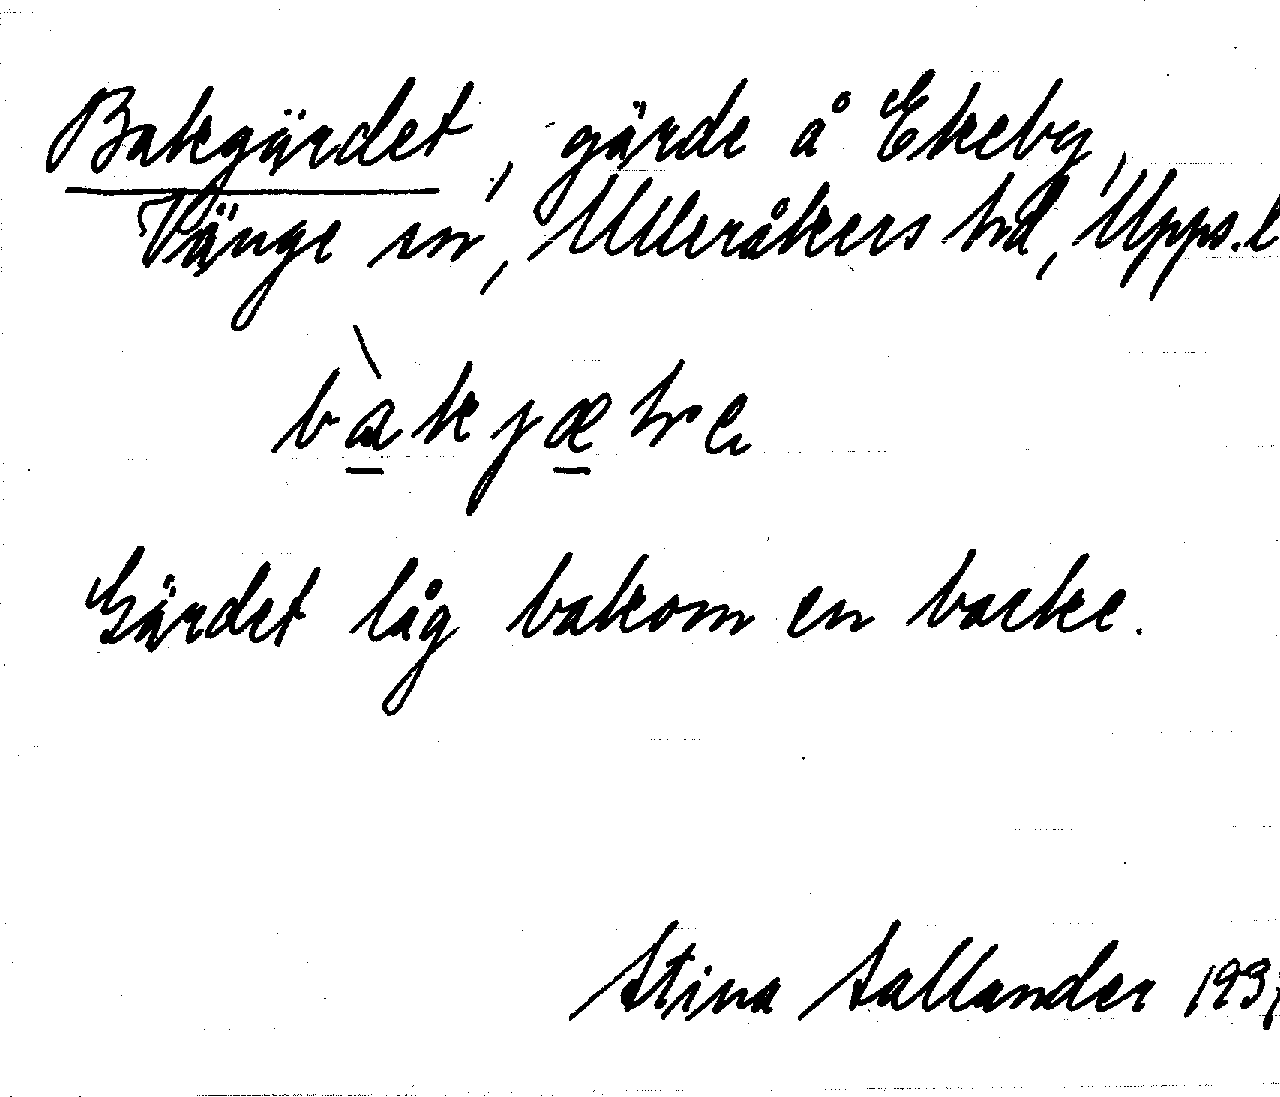 Bakgärdet, gärde å Ekeby,
Vänge sn, Ulleråkers hd, Upps. l
bàkjæḷe
Gärdet låg bakom en backe.
Stina Sallander 193